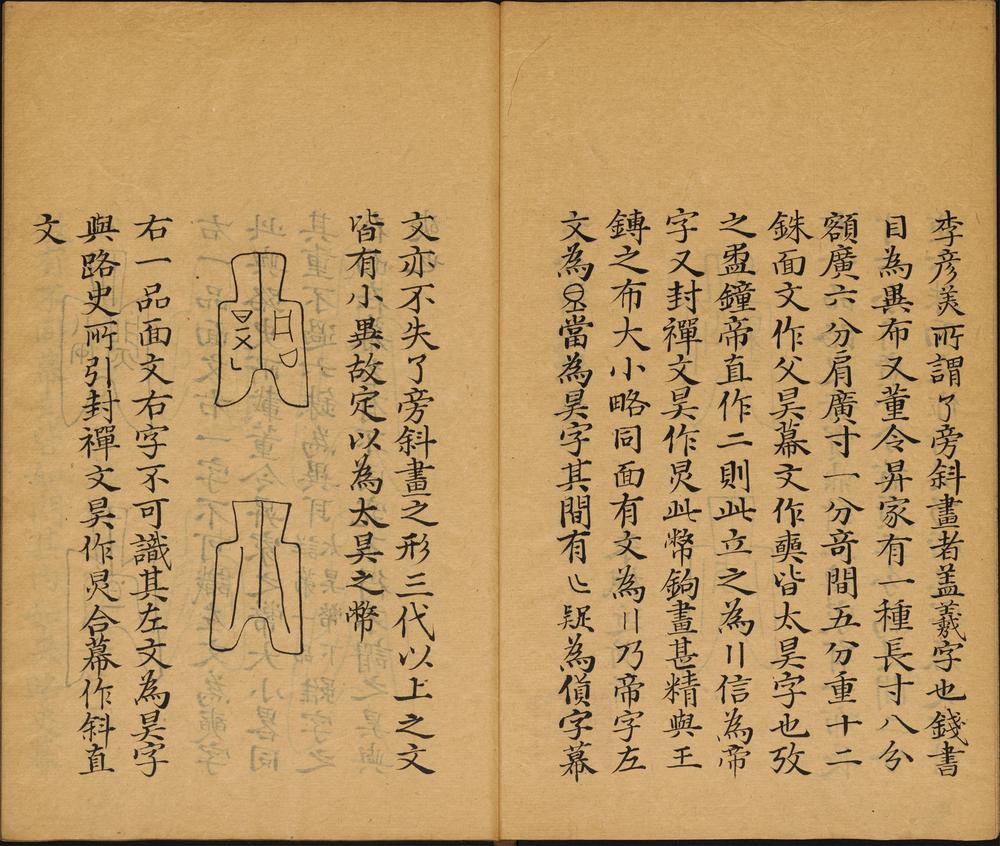 李彥美所謂了旁斜畫者盖羲字也錢書
目為異布又董令昇家有一種長寸八分
額廣六分肩廣寸一分竒間五分重十二
銖面文作父昊幕文作𡘊皆太昊字也攷
之盄鐘帝直作二則此立之為〢信為帝
字又封禪文昊作炅此幣鉤畫甚精與王
鏄之布大小略同面有文為〢乃帝字左
文為當為昊字其間有疑為偵字幕
文亦不失了旁斜畫之形三代以上之文
皆有小異故定以為太昊之幣
右一品面文右字不可識其左文為昊字
與路史所引封禪文昊作炅合幕作斜直
文